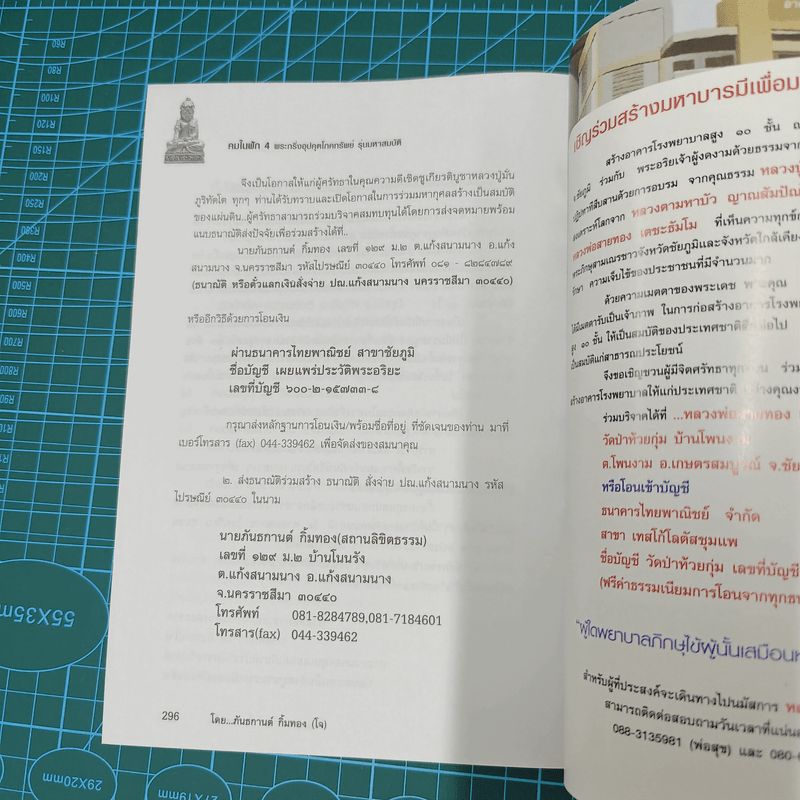 คมในฝัก 4 พระกริ่งอุปคุตโภคทรัพย์ รุ่นมหาสมบัติ
จึงเป็นโอกาสให้แก่ผู้ศรัทธาในคุณความดีเชิดชูเกียรติบูชาหลวงปู่มั่น
ภูริทัตโต ทุกๆ ท่านได้รับทราบและเปิดโอกาสในการร่วมมหากุศลสร้างเป็นสมบัติ
ของแผ่นดิน..ผู้ศรัทธาสามารถร่วมบริจาคสมทบทุนได้โดยการส่งจดหมายพร้อม
แนบธนาณัติส่งปัจจัยเพื่อร่วมสร้างได้ที่..
นายภันธกานต์ กิ้มทอง เลขที่ ๑๒๙ ม.๒ ต.แก้งสนามนาง อ.แก้ง
สนามนาง จ.นครราชสีมา รหัสไปรษณีย์ ๓๐๔๔๐ โทรศัพท์ ๐๘๑ - ๘๒๘๔๗๘๙
(ธนาณัติ หรือตั๋วแลกเงินสั่งจ่าย ปณ.แก้งสนามนาง นครราชสีมา ๓๐๔๔๐)
หรืออีกวิธีด้วยการโอนเงิน
ผ่านธนาคารไทยพาณิชย์ สาขาชัยภูมิ
ชื่อบัญชี เผยแพร่ประวัติพระอริยะ
เลขที่บัญชี ๖๐๐-๒-๑๕๗๓๓-๘
กรุณาส่งหลักฐานการโอนเงิน/พร้อมชื่อที่อยู่ ที่ชัดเจนของท่าน มาที่
เบอร์โทรสาร (fax) 044-339462 เพื่อจัดส่งของสมนาคุณ
๒. ส่งธนาณัติร่วมสร้าง ธนาณัติ สั่งจ่าย ปณ.แก้งสนามนาง รหัส
ไปรษณีย์ ๓๐๔๔๐ ในนาม
นายภันธกานต์ กิ้มทอง(สถานลิขิตธรรม)
เลขที่ ๑๒๙ ม.๒ บ้านโนนรัง
ต.แก้งสนามนาง อ.แก้งสนามนาง
จ.นครราชสีมา ๓๐๔๔๐
โทรศัพท์ 081-8284789,081-7184601
โทรสาร(fax) 044-339462
296 โดย...ภันธกานต์ กิ้มทอง (โจ)
เชิญร่วมสร้างมหาบารมีเพื่อม
สร้างอาคารโรงพยาบาลสูง ๑๐ ชั้น ณ
ชัยภูมิ ร่วมกับ พระอริยเจ้าผู้งดงามด้วยธรรมจาก
ปฏิปทาที่สืบสานด้วยการอบรม จากคุณธรรม หลวงปู่
สงเคราะห์โลกจาก หลวงตามหาบัว ญาณสัมปัณ
หลวงพ่อสายทอง เตชะธัมโม ที่เห็นความทุกข์
พระภิกษุสามเณรชาวจังหวัดชัยภูมิและจังหวัดใกล้เคียง
รักษา ความเจ็บไข้ของประชาชนที่มีจำนวนมาก
ด้วยความเมตตาของพระเดช พระคุณ
ได้มีเมตตารับเป็นเจ้าภาพ ในการก่อสร้างอาคารโรงพย
สูง ๑๐ ชั้น ให้เป็นสมบัติของประเทศชาติ
เป็นสมบัติแก่สาธารณประโยชน์
จึงขอเชิญชวนผู้มีจิตศรัทธาทุก ร่วม
สร้างอาคารโรงพยาบาลให้แก่ประเทศชาติ
ร่วมบริจาคได้ที่ ...หลวงพ่อสายทอง
วัดป่าห้วยกุ่ม บ้านโพนงาม
ต.โพนงาม อ.เกษตรสมบูรณ์ จ.ชัย
หรือโอนเข้าบัญชี
ธนาคารไทยพาณิชย์ จำกัด
สาขา เทสโก้โลตัสชุมแพ
ชื่อบัญชี วัดป่าห้วยกุ่ม เลขที่บัญชี
(ฟรีค่าธรรมเนียมการโอนจากทุกธน
"ผู้ใดพยาบาลภิกษุไข้ผู้นั้นเสมือน
สำหรับผู้ที่ประสงค์จะเดินทางไปนมัสการ
สามารถติดต่อสอบถามวันเวลาที่แน่น
088-3135981 (พ่อสุข) และ 080-6
55X35mm
29X20mm
27X19mm